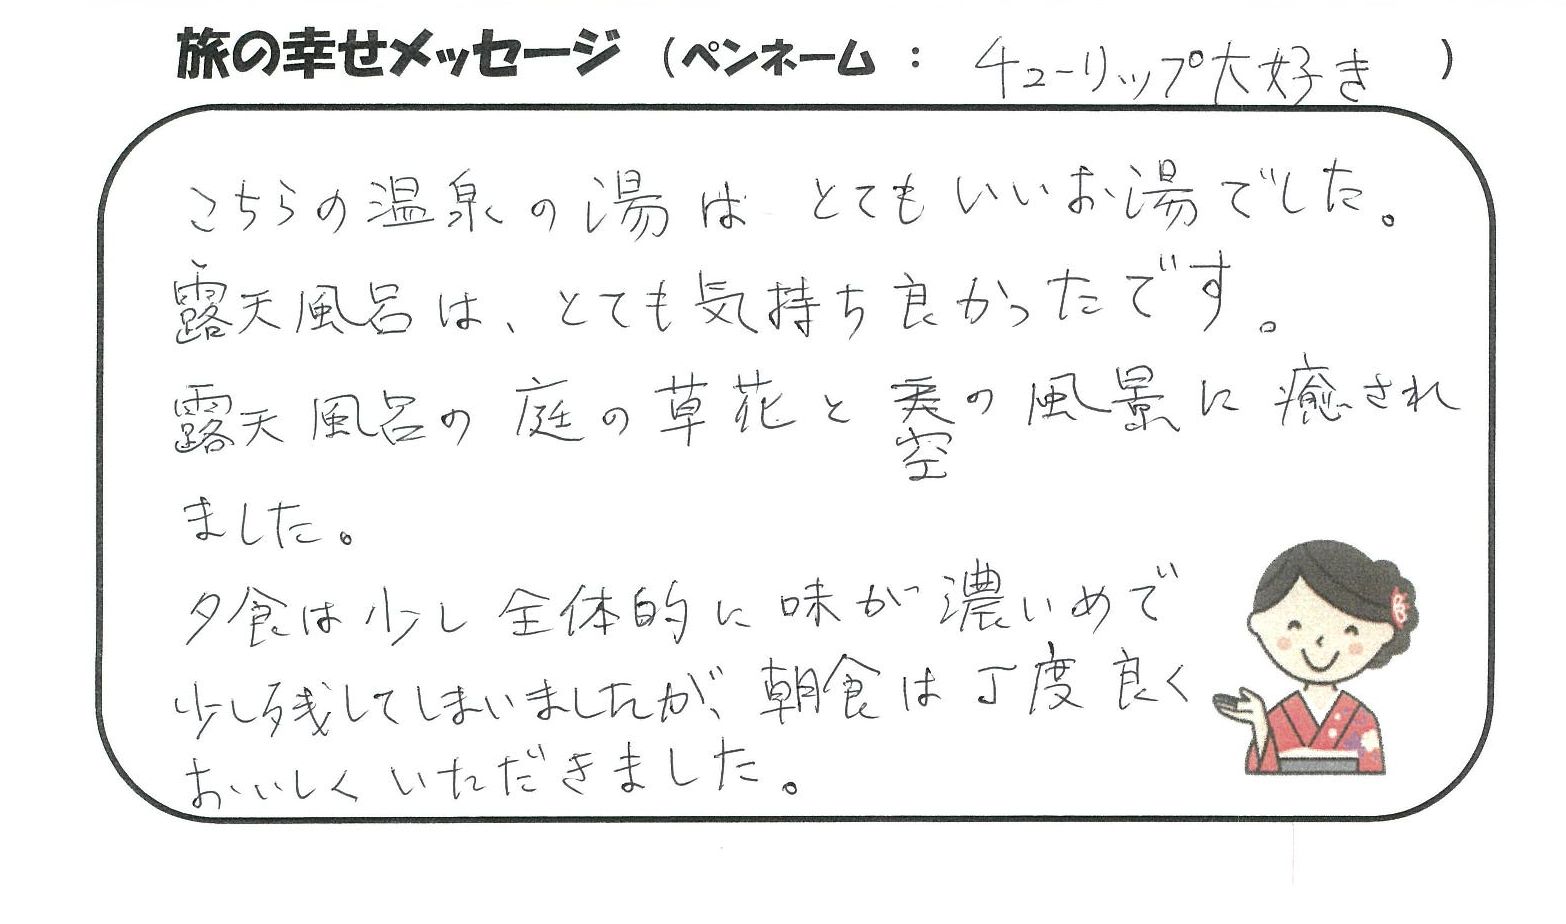 旅の幸せメッセージ （ペンネーム ： チューリップ大好き ）
こちらの温泉の湯は とてもいいお湯でした。
露天風呂は、とても気持ち良かったです。
露天風呂の庭の草花と空の風景に癒され
ました。
夕食は少し全体的に味が濃いめで
少し残してしまいましたが、朝食は丁度良く
おいしくいただきました。